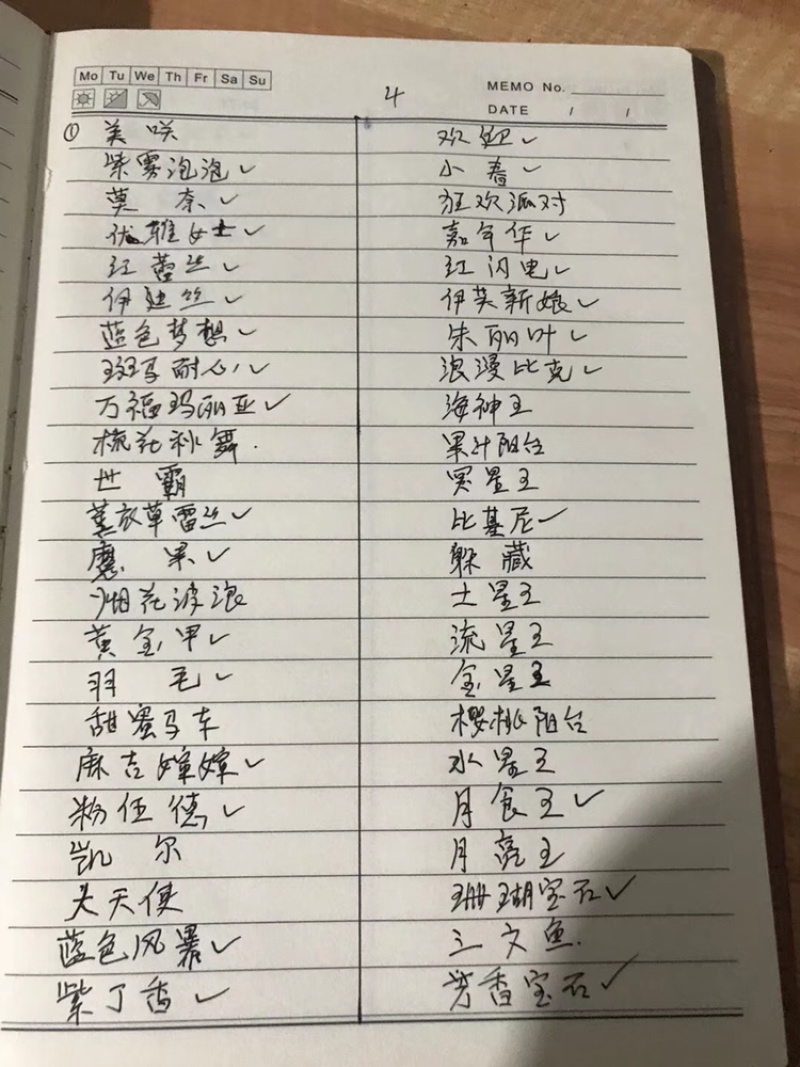 Mo Tu We Th Fr Sa Su
4
MEMO No.
DATE / /
① 美咲
紫雾泡泡 ✓
莫奈 ✓
优雅女士 ✓
红蕾丝 ✓
伊迪丝 ✓
蓝色梦想 ✓
斑马耐心 ✓
万福玛丽亚 ✓
梳花秋舞.
世霸
薰衣草蕾丝 ✓
魔果 ✓
烟花波浪
黄金甲 ✓
羽毛 ✓
甜蜜马车
麻吉婶婶 ✓
粉伍德 ✓
凯尔
大天使
蓝色风暴 ✓
紫丁香 ✓
欢迎 ✓
小春 ✓
狂欢派对
嘉年华 ✓
红闪电 ✓
伊芙新娘 ✓
朱丽叶 ✓
浪漫比克 ✓
海神王
果汁阳台
冥星王
比基尼 ✓
躲藏
土星王
流星王
金星王
樱桃阳台
水星王
月食王 ✓
月亮王
珊瑚宝石 ✓
三文鱼.
芳香宝石 ✓